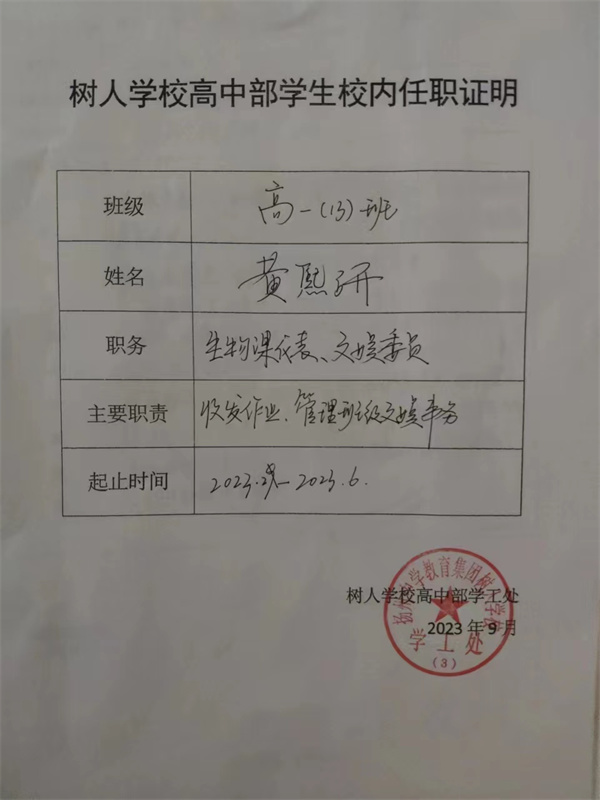 树人学校高中部学生校内任职证明
班级 高一(13)班
姓名 黄熙研
职务 生物课代表、文娱委员
主要职责 收发作业、管理班级文娱事务
起止时间 2023.2—2023.6.
树人学校高中部学工处
2023年9月
扬州中学教育集团树人学校
学工处
(3)